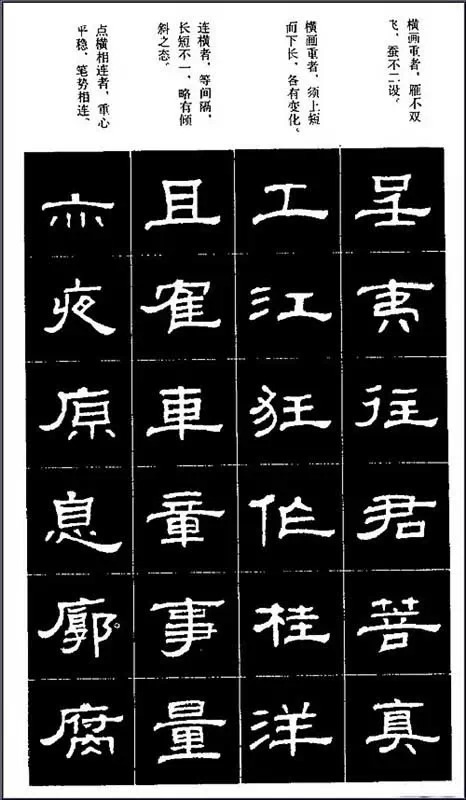 横画重者，雁不双
飞、蚕不二设。
横画重者，须上短
而下长，各有变化。
连横者，等间隔，
长短不一，略有倾
斜之态。
点横相连者，重心
平稳，笔势相连。
呈夷往君菩真
工江狂作桂洋
且寉車章事量
亦夜原息廓腐